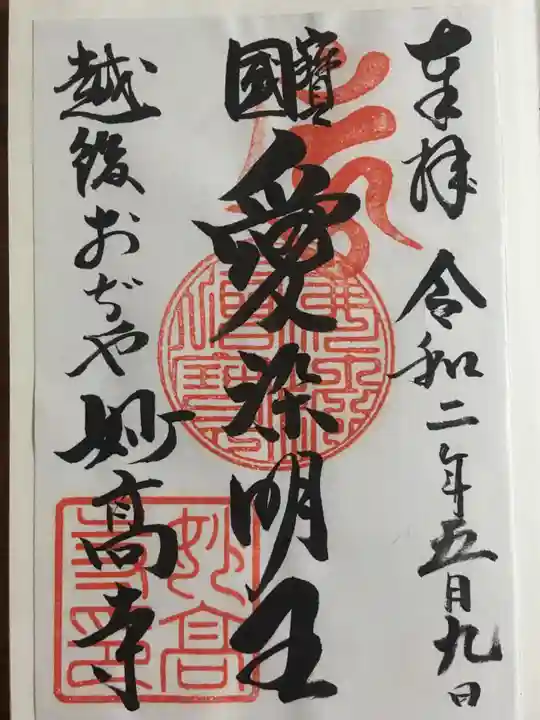 奉拝 令和二年五月九日
國寶
愛染明王
越後おぢや 妙高寺
妙高寺印
佛法僧寳